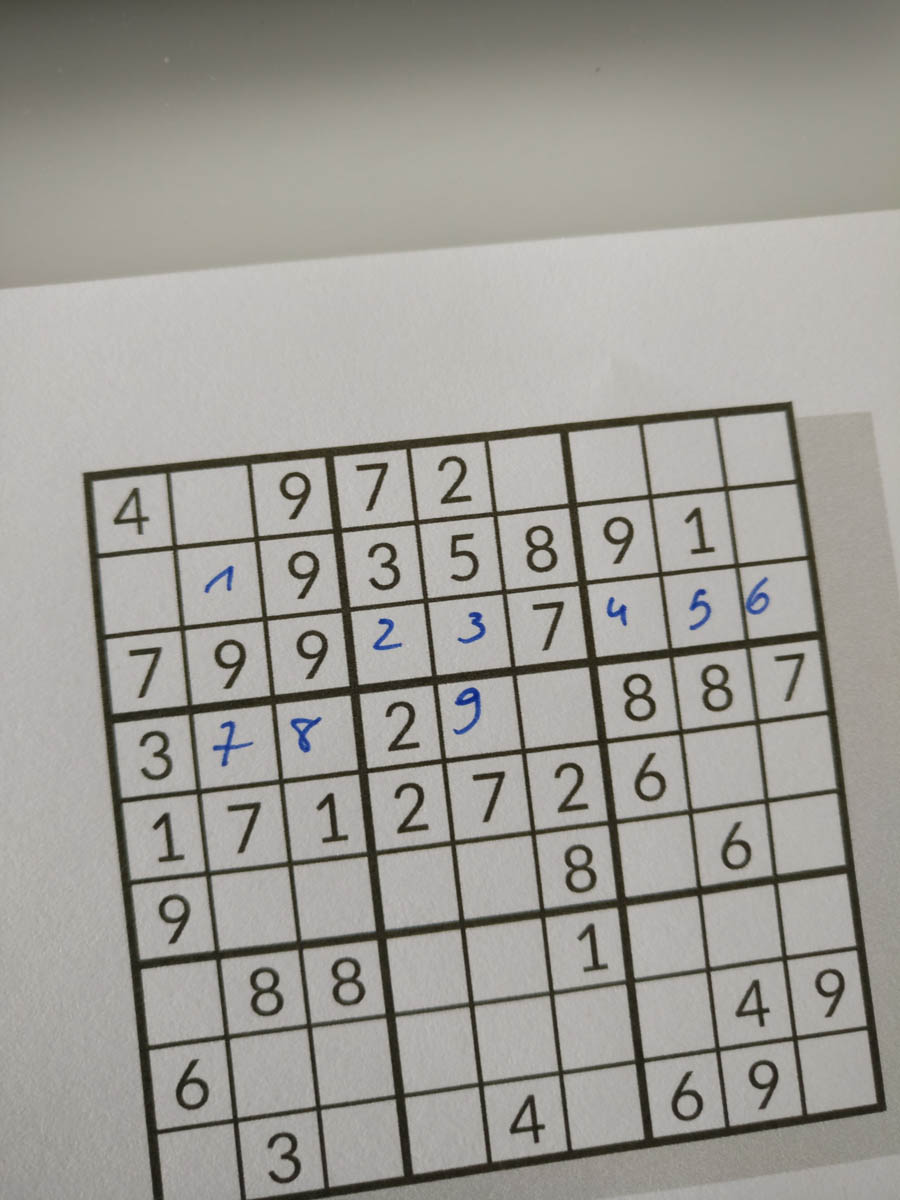 4 9 7 2
1 9 3 5 8 9 1
7 9 9 2 3 7 4 5 6
3 7 8 2 9 8 8 7
1 7 1 2 7 2 6
9 8 6
8 8 1
6 4 9
3 4 6 9